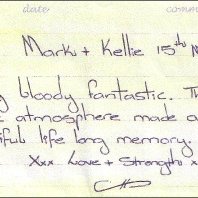 date comm
Mark + Kellie 15th M
g bloody fantastic. Th
atmosphere made a
iful life long memory.
Xxx Love + Strength x